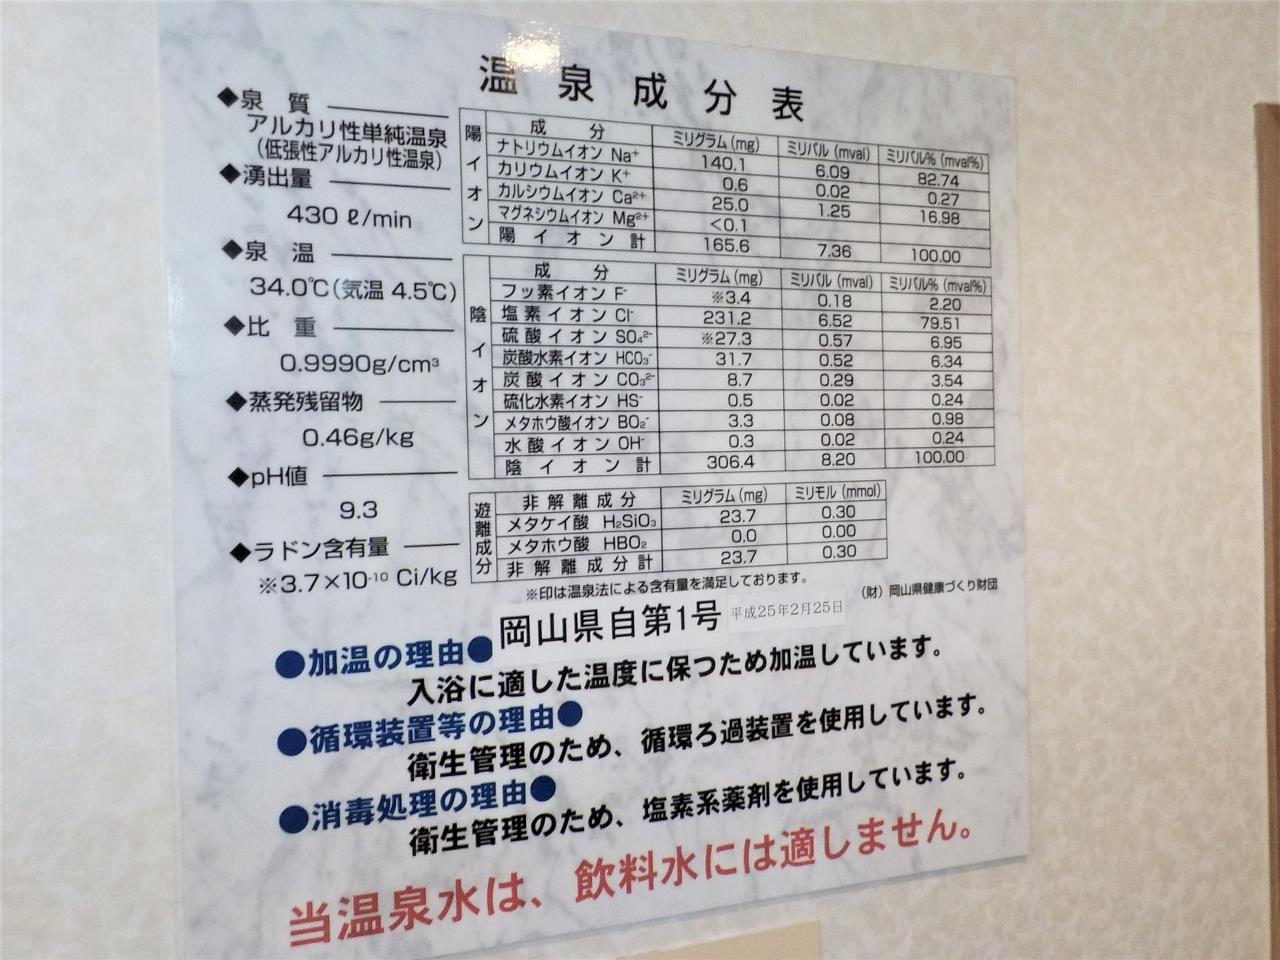 温泉成分表
◆泉質
アルカリ性単純温泉
(低張性アルカリ性温泉)
◆湧出量
430 ℓ/min
◆泉温
34.0℃(気温 4.5℃)
◆比重
0.9990g/cm³
◆蒸発残留物
0.46g/kg
◆pH値
9.3
◆ラドン含有量
※3.7×10⁻¹⁰ Ci/kg
陽イオン
成分 ミリグラム(mg) ミリバル(mval) ミリバル%(mval%)
ナトリウムイオン Na⁺ 140.1 6.09 82.74
カリウムイオン K⁺ 0.6 0.02 0.27
カルシウムイオン Ca²⁺ 25.0 1.25 16.98
マグネシウムイオン Mg²⁺ <0.1
陽イオン計 165.6 7.36 100.00
陰イオン
成分 ミリグラム(mg) ミリバル(mval) ミリバル%(mval%)
フッ素イオン F⁻ ※3.4 0.18 2.20
塩素イオン Cl⁻ 231.2 6.52 79.51
硫酸イオン SO₄²⁻ ※27.3 0.57 6.95
炭酸水素イオン HCO₃⁻ 31.7 0.52 6.34
炭酸イオン CO₃²⁻ 8.7 0.29 3.54
硫化水素イオン HS⁻ 0.5 0.02 0.24
メタホウ酸イオン BO₂⁻ 3.3 0.08 0.98
水酸イオン OH⁻ 0.3 0.02 0.24
陰イオン計 306.4 8.20 100.00
遊離成分
非解離成分 ミリグラム(mg) ミリモル(mmol)
メタケイ酸 H₂SiO₃ 23.7 0.30
メタホウ酸 HBO₂ 0.0 0.00
非解離成分計 23.7 0.30
※印は温泉法による含有量を満足しております。
(財)岡山県健康づくり財団
岡山県自第1号 平成25年2月25日
●加温の理由●
入浴に適した温度に保つため加温しています。
●循環装置等の理由●
衛生管理のため、循環ろ過装置を使用しています。
●消毒処理の理由●
衛生管理のため、塩素系薬剤を使用しています。
当温泉水は、飲料水には適しません。